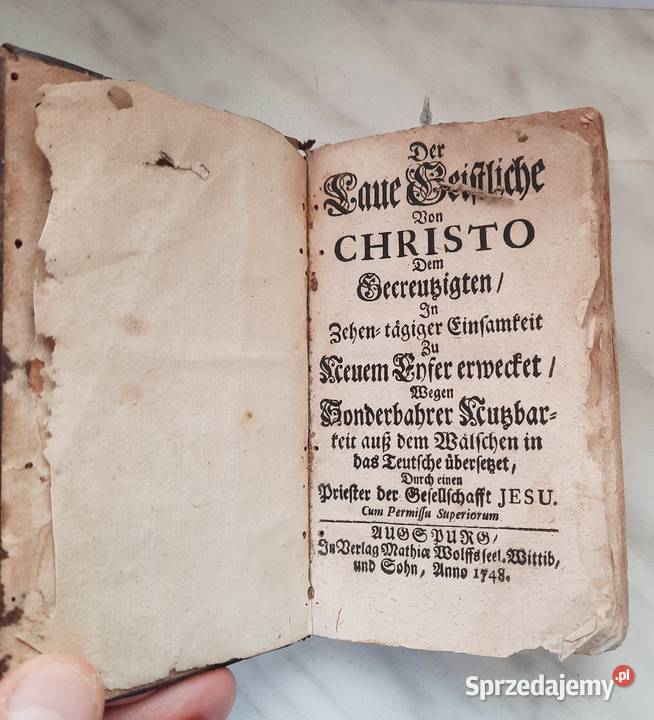 Der
Laue Geistliche
Von
CHRISTO
Dem
Gecreutzigten/
In
Zehen-tägiger Einsamkeit
Zu
Neuem Eyfer erwecket/
Wegen
Sonderbahrer Nutzbar-
keit auß dem Wälschen in
das Teutsche übersetzet,
Durch einen
Priester der Gesellschafft JESU.
Cum Permissu Superiorum
AUGSPURG/
In Verlag Mathiæ Wolffs seel. Wittib,
und Sohn, Anno 1748.
Sprzedajemy.pl